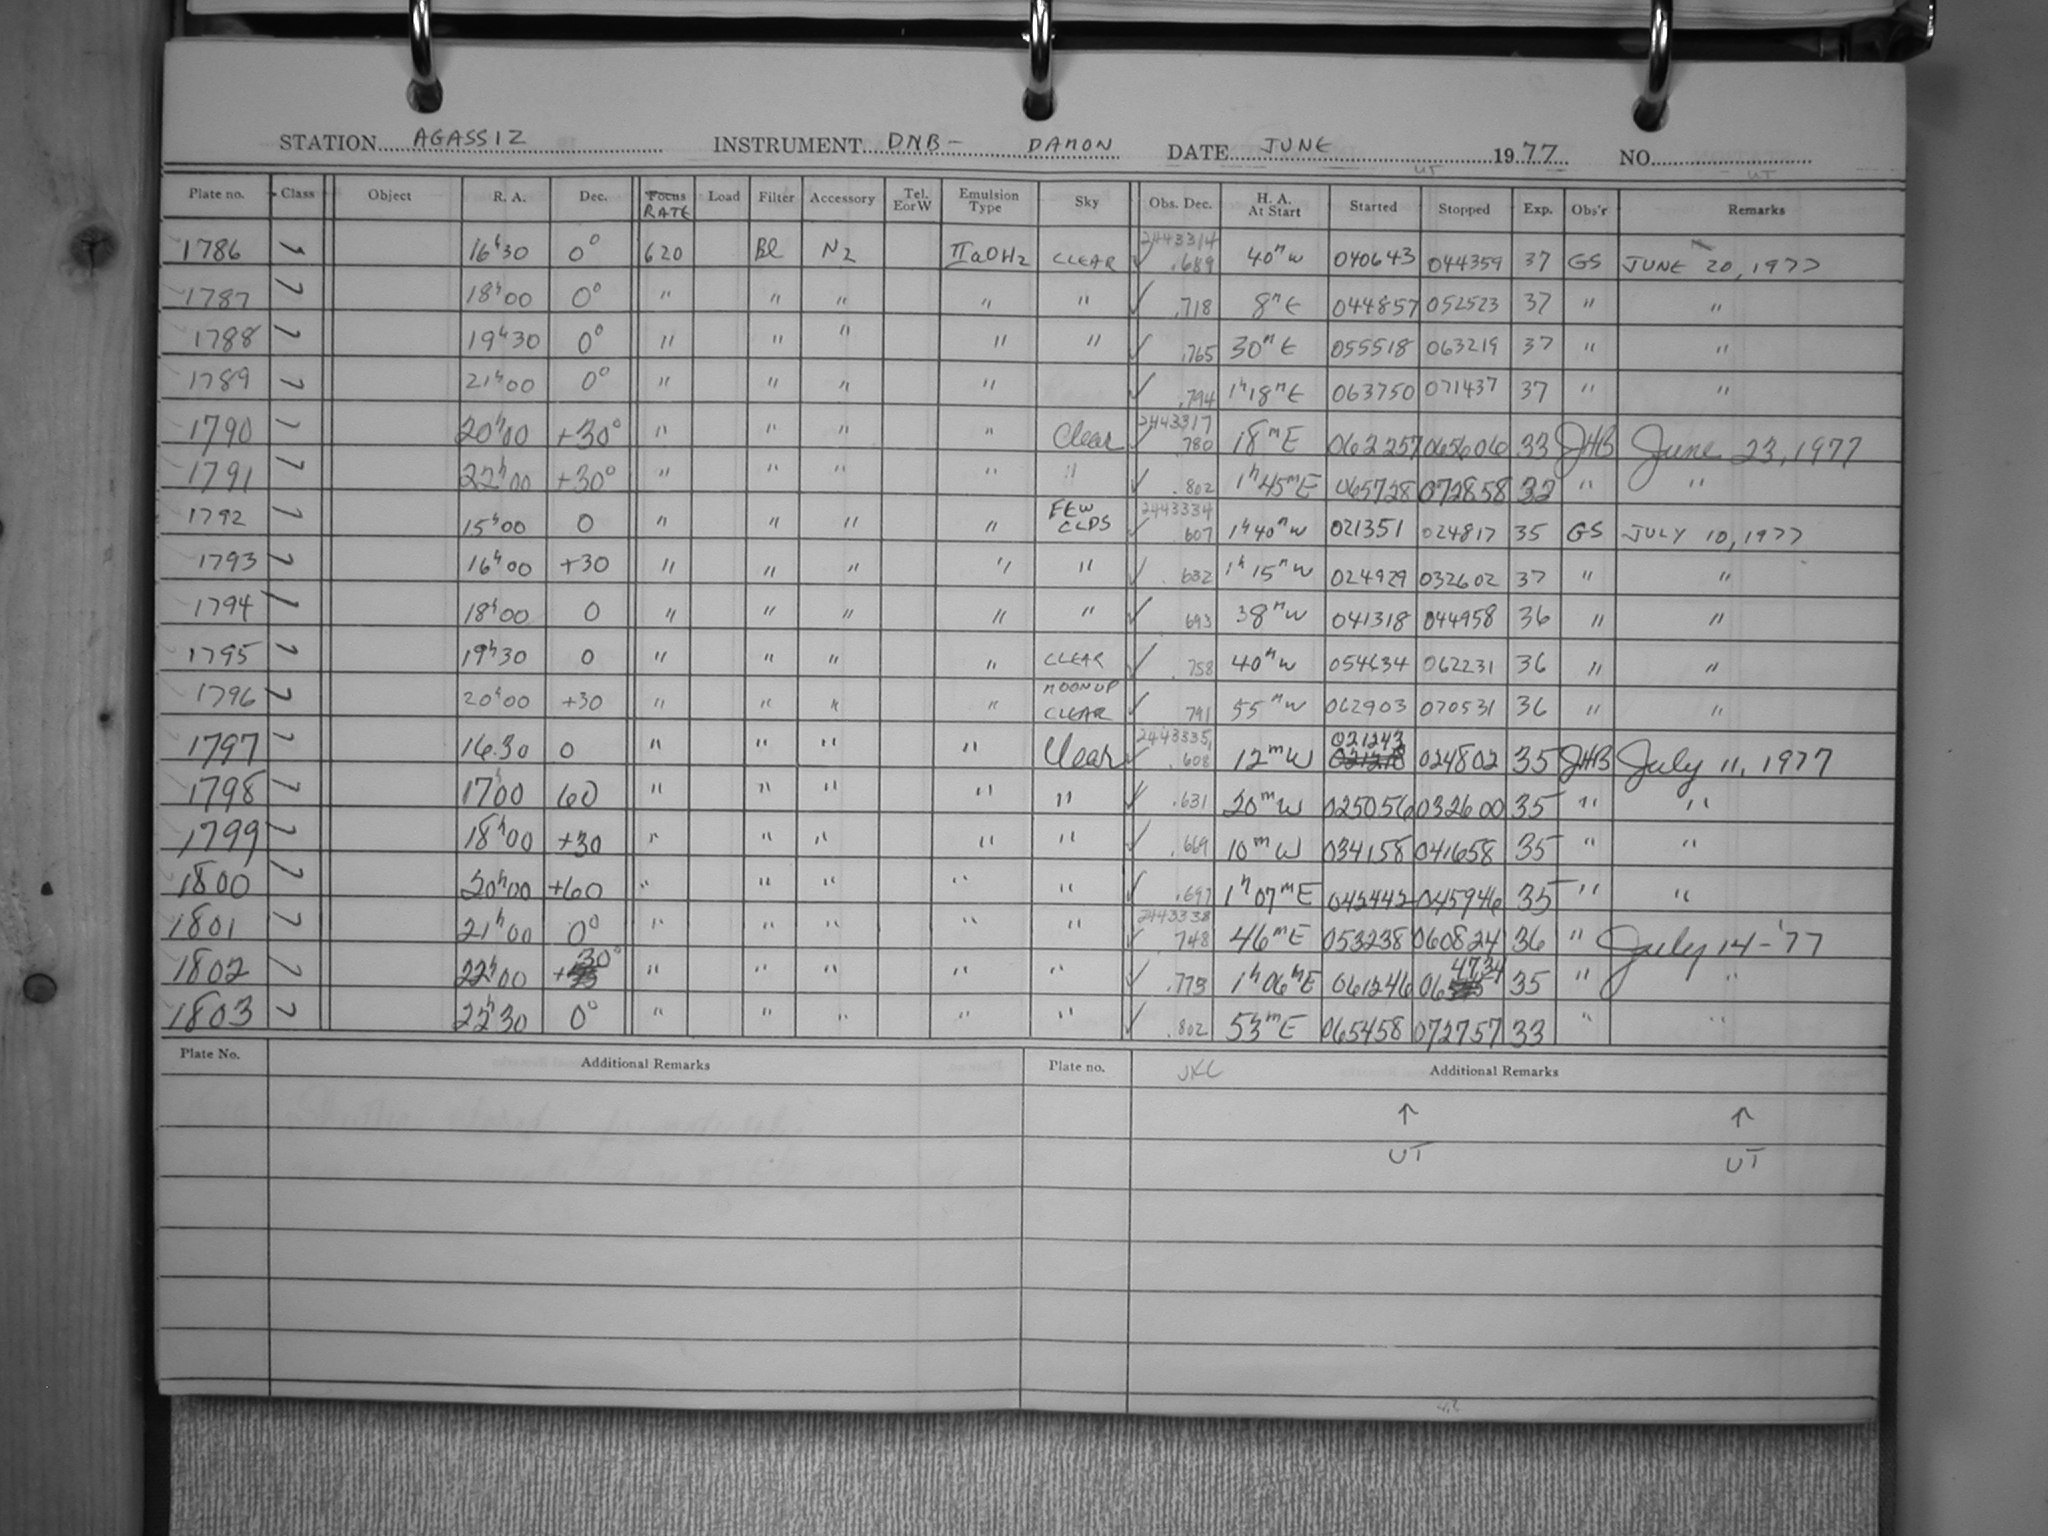 STATION AGASSIZ INSTRUMENT DNB- DAMON DATE JUNE 1977 NO.
UT UT
Plate no. Class Object R. A. Dec. Focus RATE Load Filter Accessory Tel. EorW Emulsion Type Sky Obs. Dec. H. A. At Start Started Stopped Exp. Obs'r Remarks
1786 7 16h30 0° 620 Bl N2 IIaOH2 CLEAR 2443314 .689 40m W 040643 044359 37 GS JUNE 20, 1977
1787 7 18h00 0° " " " " " .718 8m E 044857 052523 37 " "
1788 7 19h30 0° " " " " " .765 30m E 055518 063219 37 " "
1789 7 21h00 0° " " " " .794 1h18m E 063750 071437 37 " "
1790 7 20h00 +30° " " " " Clear 2443317 .780 18m E 062257 065606 33 JHB June 23, 1977
1791 7 22h00 +30° " " " " " .802 1h45m E 065728 072858 32 " "
1792 7 15h00 0 " " " " FEW CLDS 2443334 .607 1h40m W 021351 024817 35 GS JULY 10, 1977
1793 7 16h00 +30 " " " " " .632 1h15m W 024929 032602 37 " "
1794 7 18h00 0 " " " " " .693 38m W 041318 044958 36 " "
1795 7 19h30 0 " " " " CLEAR .758 40m W 054634 062231 36 " "
1796 7 20h00 +30 " " " " MOON UP CLEAR .791 55m W 062903 070531 36 " "
1797 7 16.30 0 " " " " Clear 2443335 .608 12m W 021243 024802 35 JHB July 11, 1977
1798 7 17h00 60 " " " " " .631 20m W 025056 032600 35 " "
1799 7 18h00 +30 " " " " " .669 10m W 034158 041658 35 " "
1800 7 20h00 +60 " " " " " .697 1h07m E 042442 045946 35 " "
1801 7 21h00 0° " " " " " 2443338 .748 46m E 053238 060824 36 " July 14-'77
1802 7 22h00 +30° " " " " " .775 1h06m E 061246 064734 35 " "
1803 7 22h30 0° " " " " " .802 53m E 065458 072757 33 " "
Plate No. Additional Remarks Plate no. JKC Additional Remarks
↑ ↑
UT UT